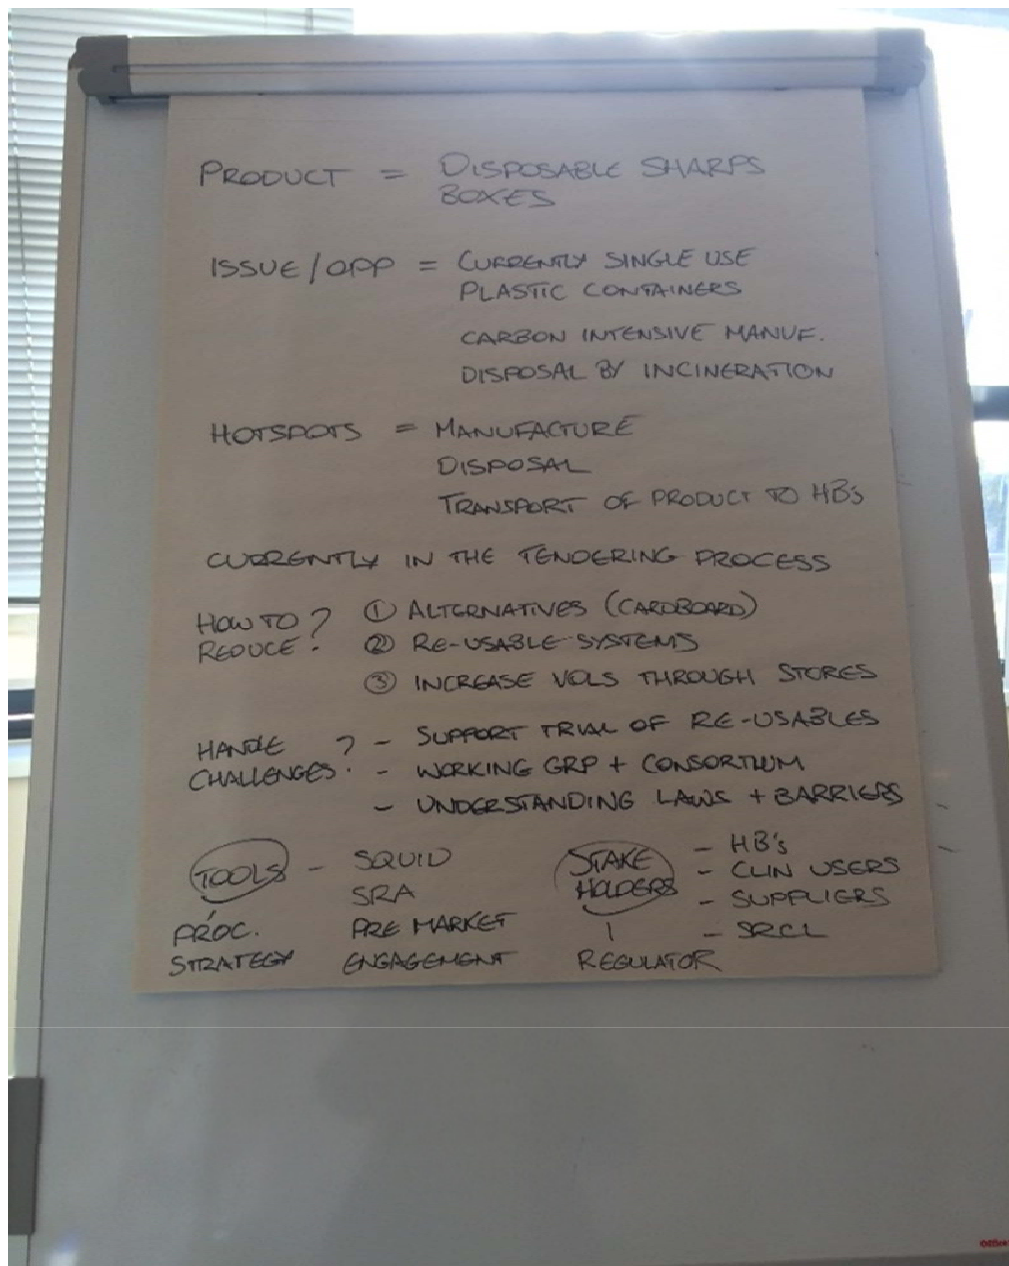 PRODUCT = DISPOSABLE SHARPS
BOXES
ISSUE/OPP = CURRENTLY SINGLE USE
PLASTIC CONTAINERS
CARBON INTENSIVE MANUF.
DISPOSAL BY INCINERATION
HOTSPOTS = MANUFACTURE
DISPOSAL
TRANSPORT OF PRODUCT TO HB's
CURRENTLY IN THE TENDERING PROCESS
HOW TO REDUCE?
① ALTERNATIVES (CARDBOARD)
② RE-USABLE SYSTEMS
③ INCREASE VOLS THROUGH STORES
HANDLE CHALLENGES?
- SUPPORT TRIAL OF RE-USABLES
- WORKING GRP + CONSORTIUM
- UNDERSTANDING LAWS + BARRIERS
TOOLS - SQUID
SRA
PROC. STRATEGY
PRE MARKET
ENGAGEMENT
STAKE
HOLDERS
- HB's
- CLIN USERS
- SUPPLIERS
- SRCL
REGULATOR